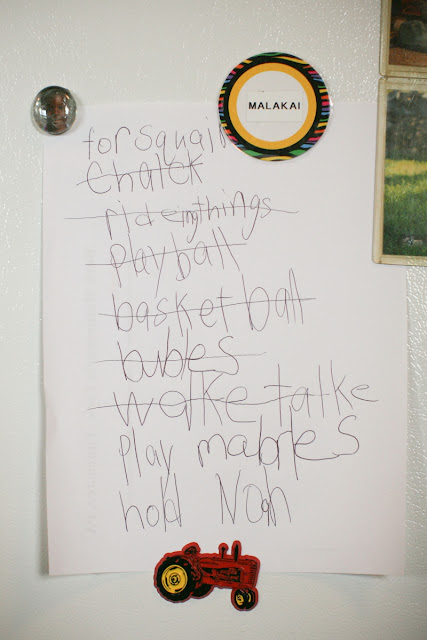 MALAKAI
for
Chalck
rideing things
play ball
basket ball
bubles
walke talke
play mabrles
hold Noah